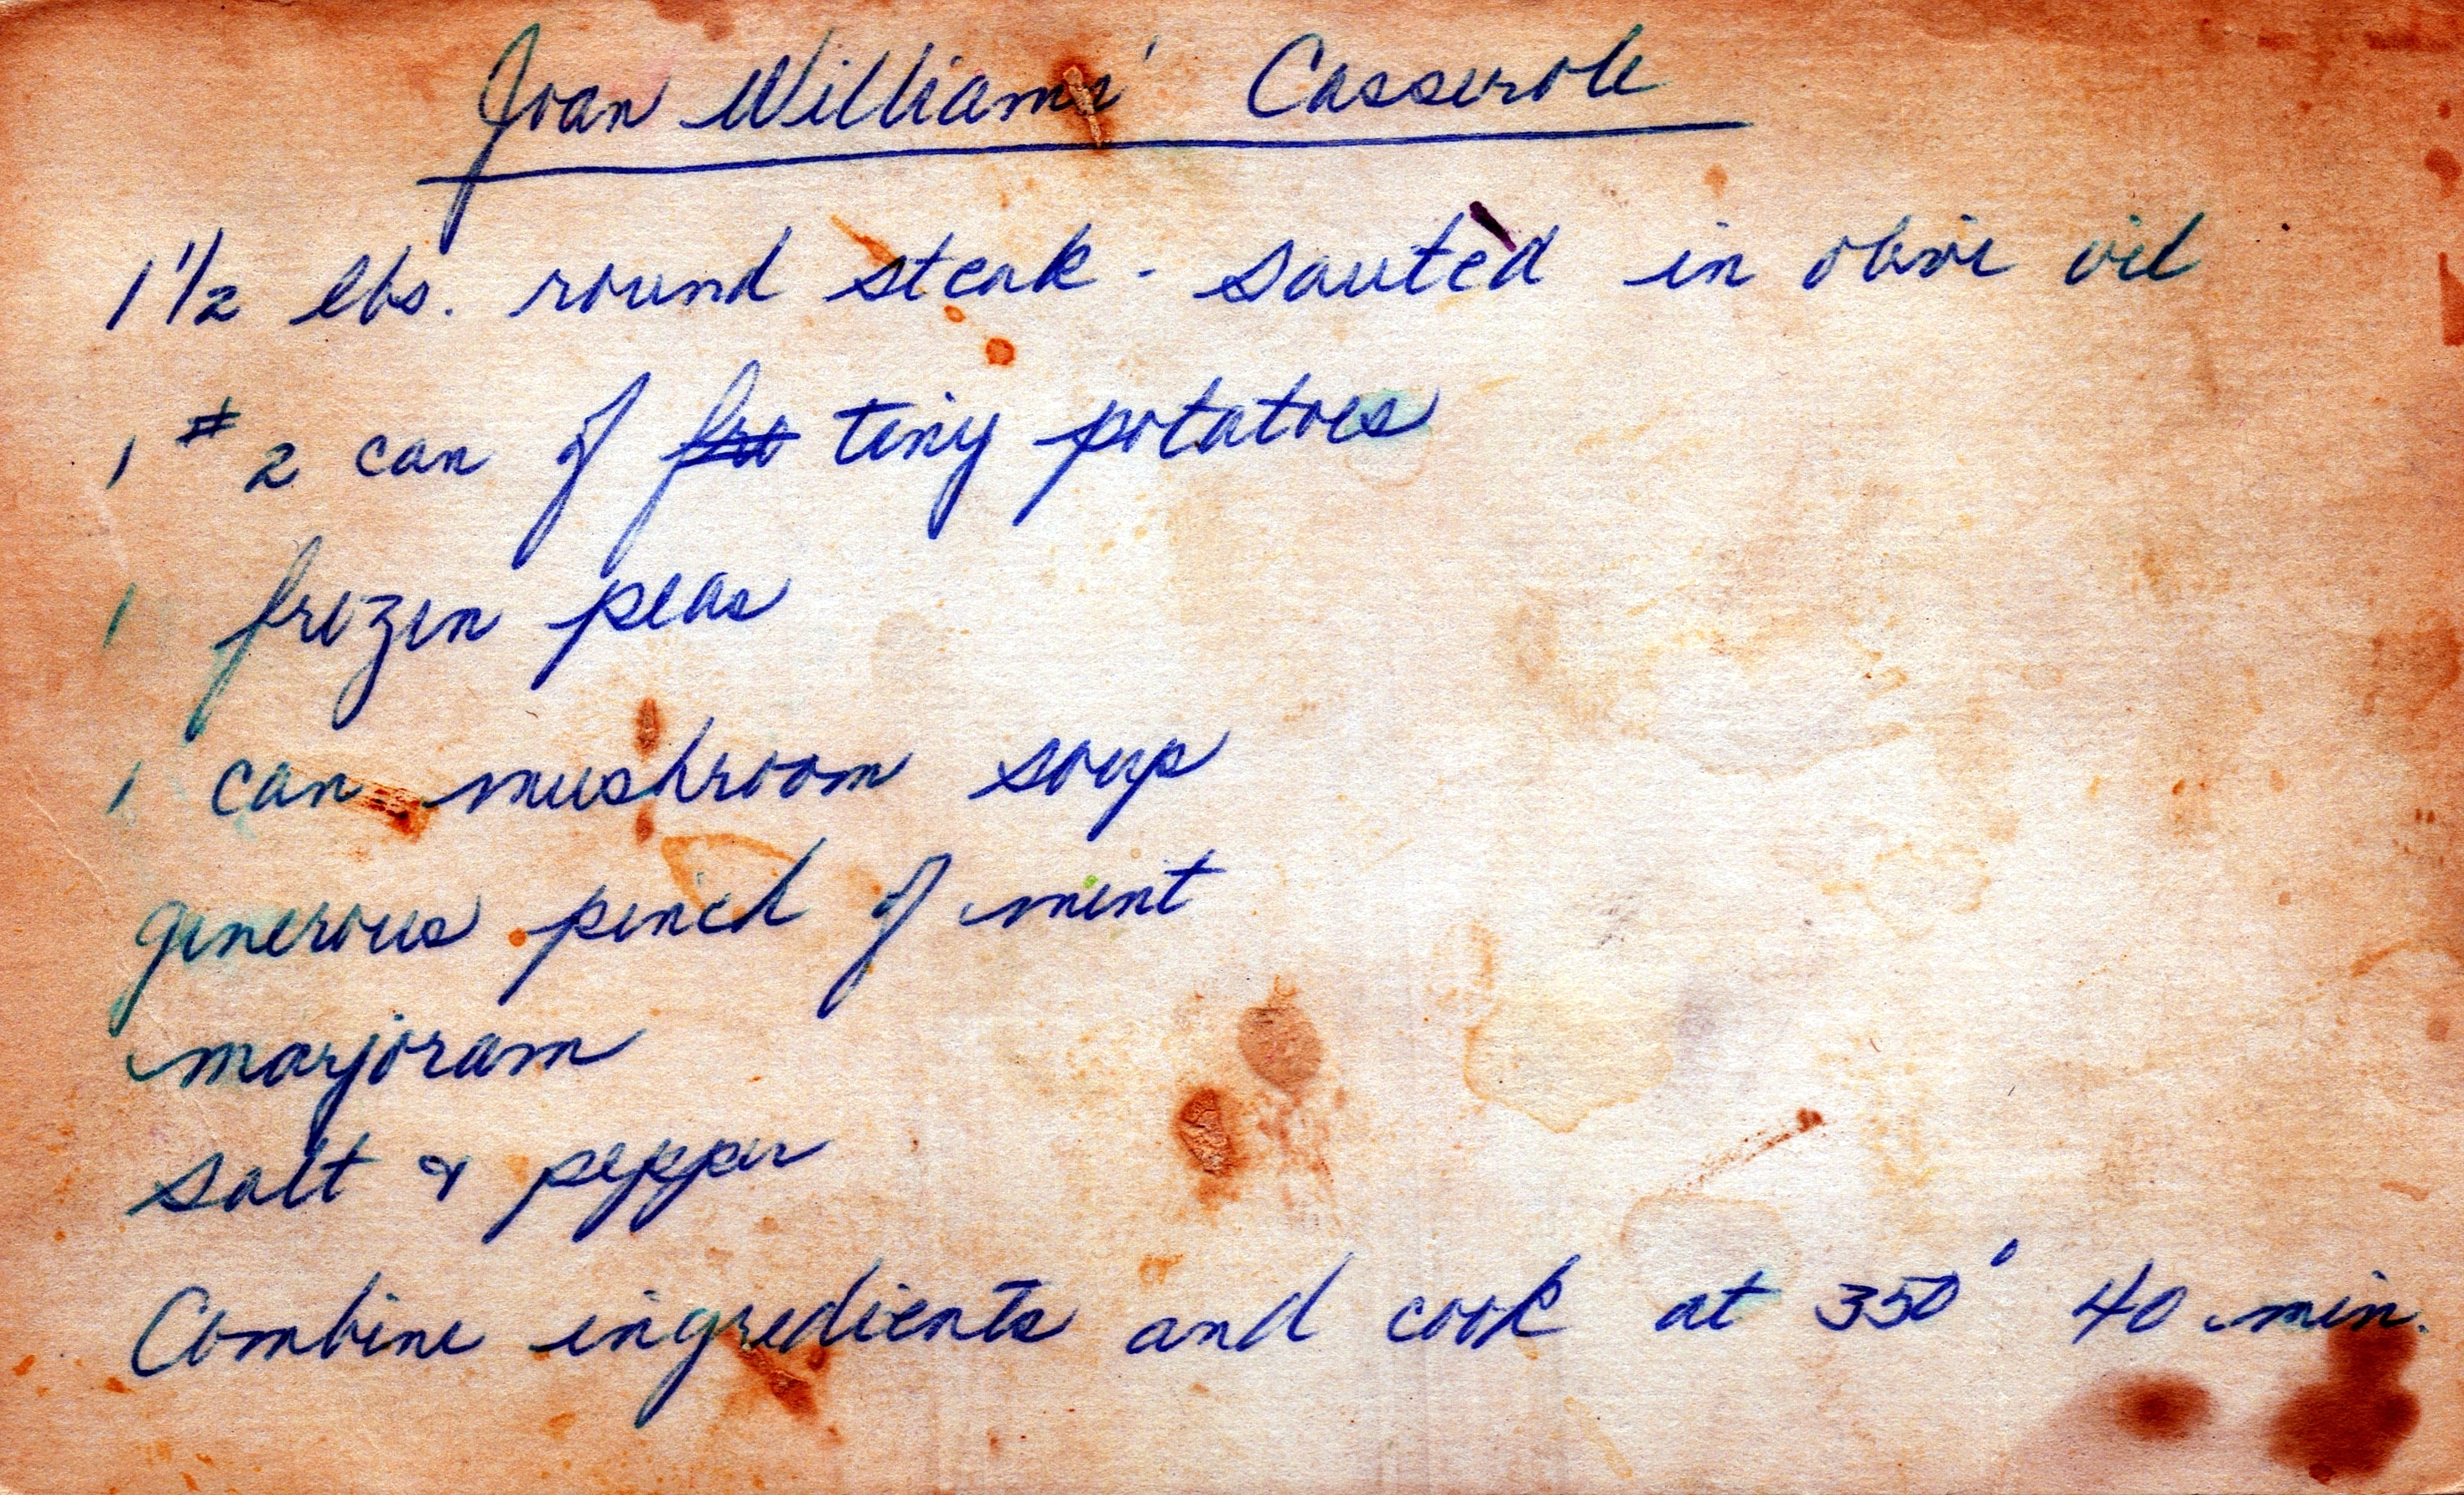 Joan Williams' Casserole
1 1/2 lbs. round steak - sautèd in olive oil
1 # 2 can of fro tiny potatoes
1 frozen peas
1 can mushroom soup
generous pinch of mint
marjoram
salt & pepper
Combine ingredients and cook at 350° 40 min.